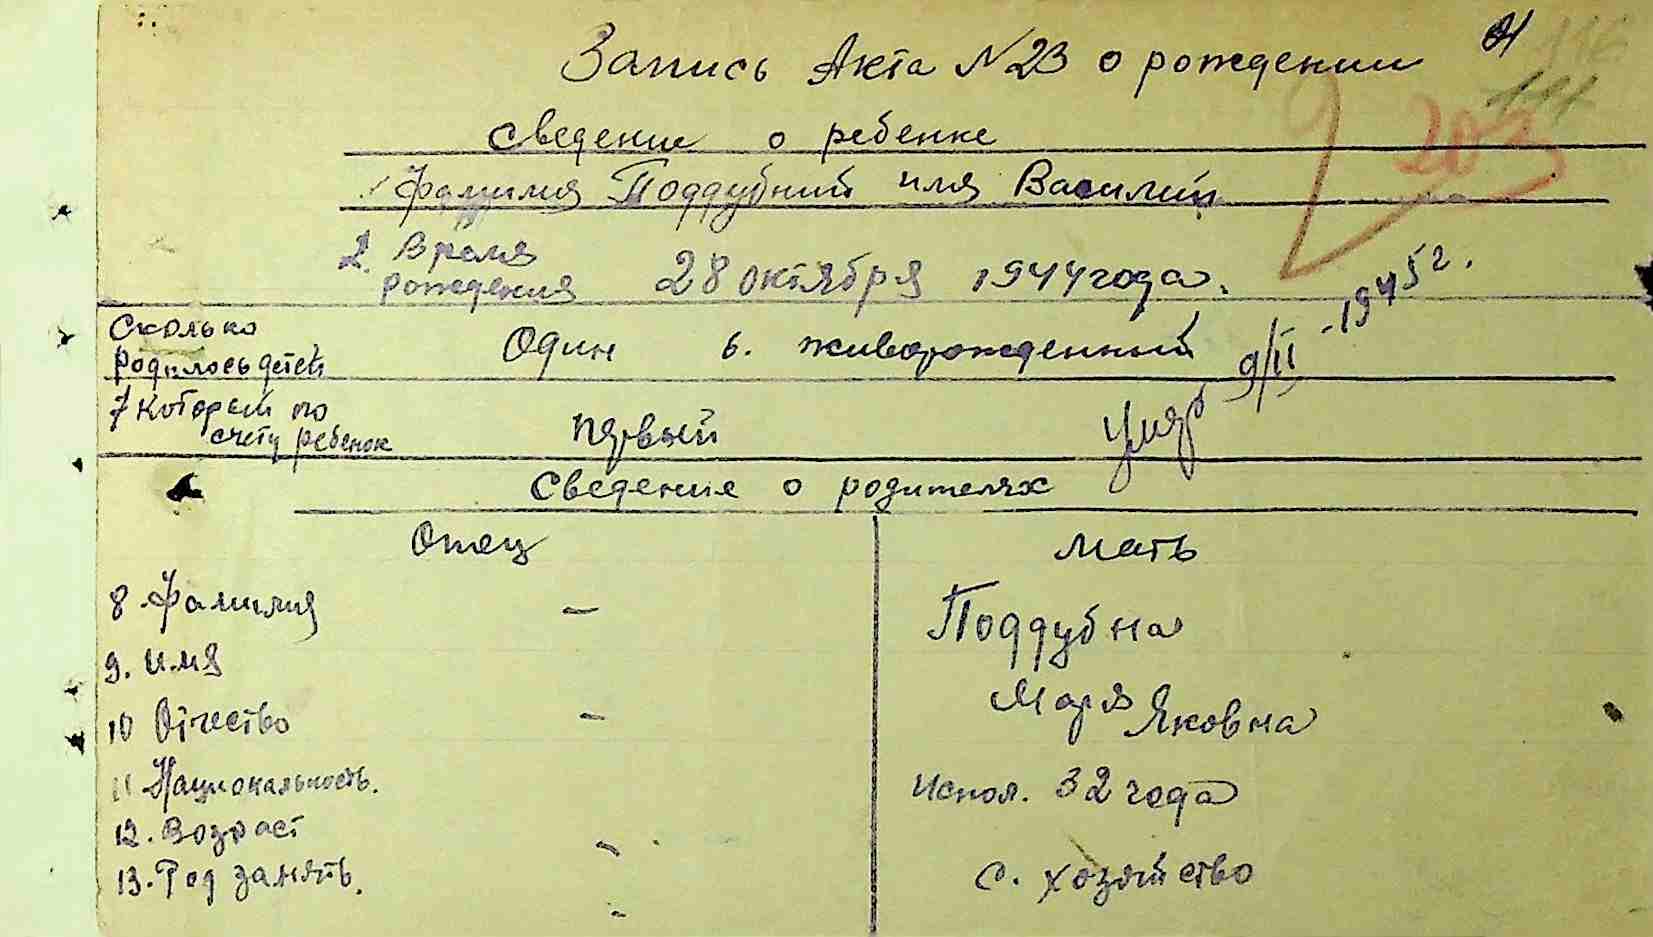 Запись Акта №23 о рождении
111
203
Сведение о ребенке
Фамилия Поддубний имя Василий
2. Время
рождения 28 октября 1944 года.
Сколько
родилось детей Один 6. живорожденний
7 Который по
счету ребенок первый
9/II - 1945 г.
Сведение о родителях
Отец Мать
8. Фамилия – Поддубна
9. имя Мария
10 Отчество – Яковна
11 Национальность. Испол. 32 года
12. Возраст -
13. Род занять. - с. хозяйство